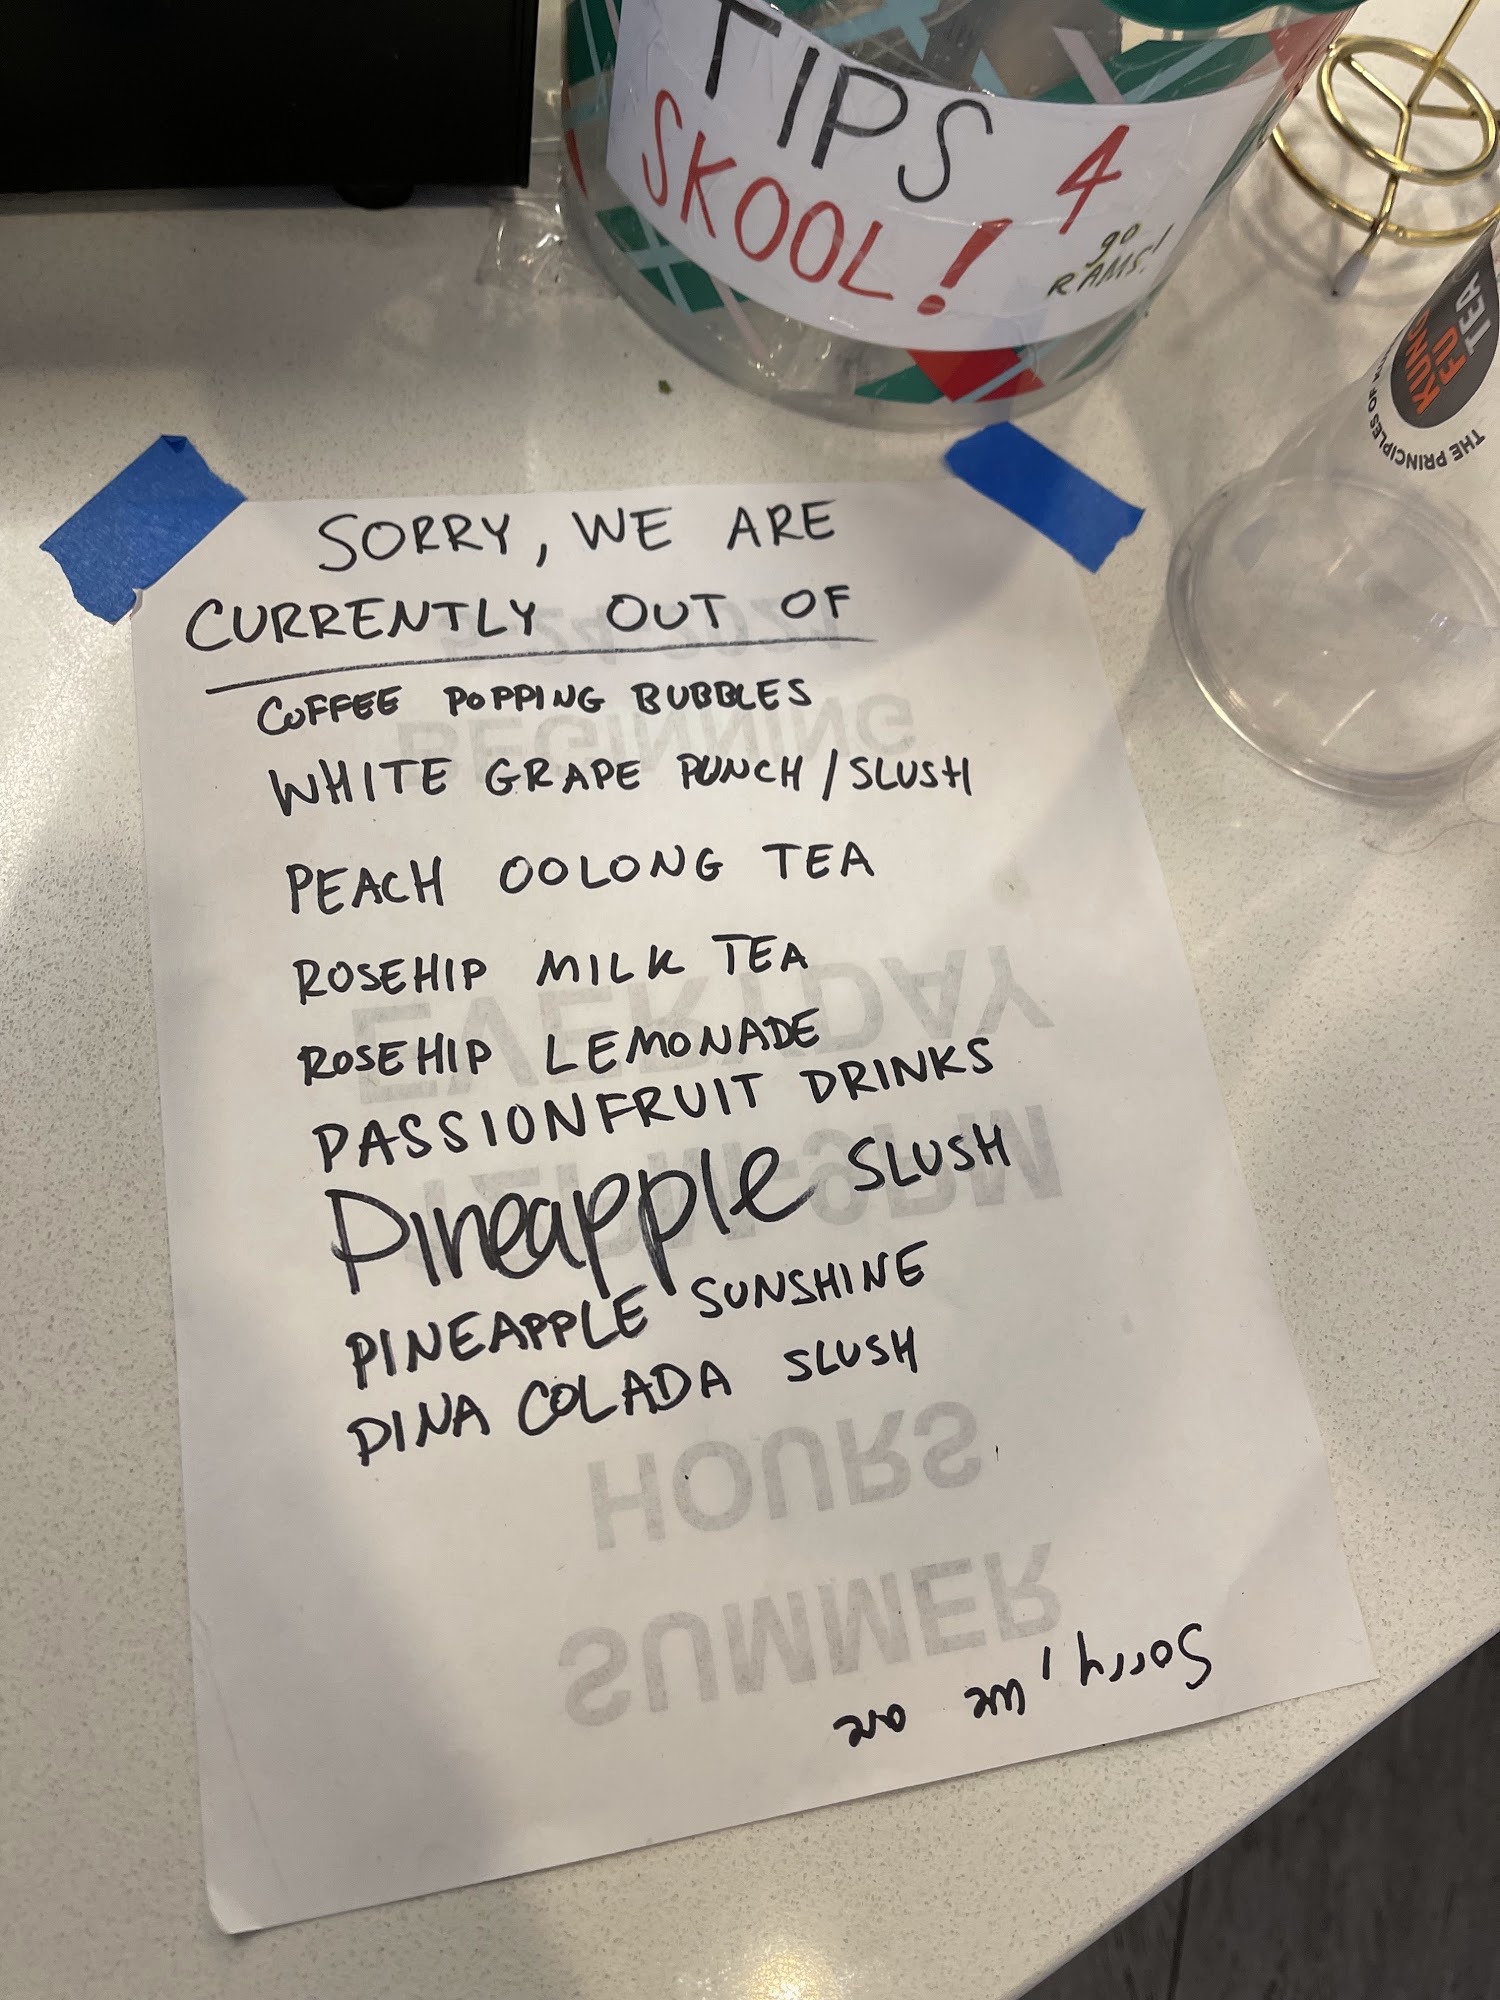 TIPS 4
SKOOL!
go
RAMS!
KUNG
FU
TEA
THE PRINCIPLES OF
SORRY, WE ARE
CURRENTLY OUT OF
COFFEE POPPING BUBBLES
WHITE GRAPE PUNCH/SLUSH
PEACH OOLONG TEA
ROSEHIP MILK TEA
ROSEHIP LEMONADE
PASSIONFRUIT DRINKS
Pineapple SLUSH
PINEAPPLE SUNSHINE
PINA COLADA SLUSH
Sorry, we are
SUMMER
HOURS
EVERYDAY
BEGINNING